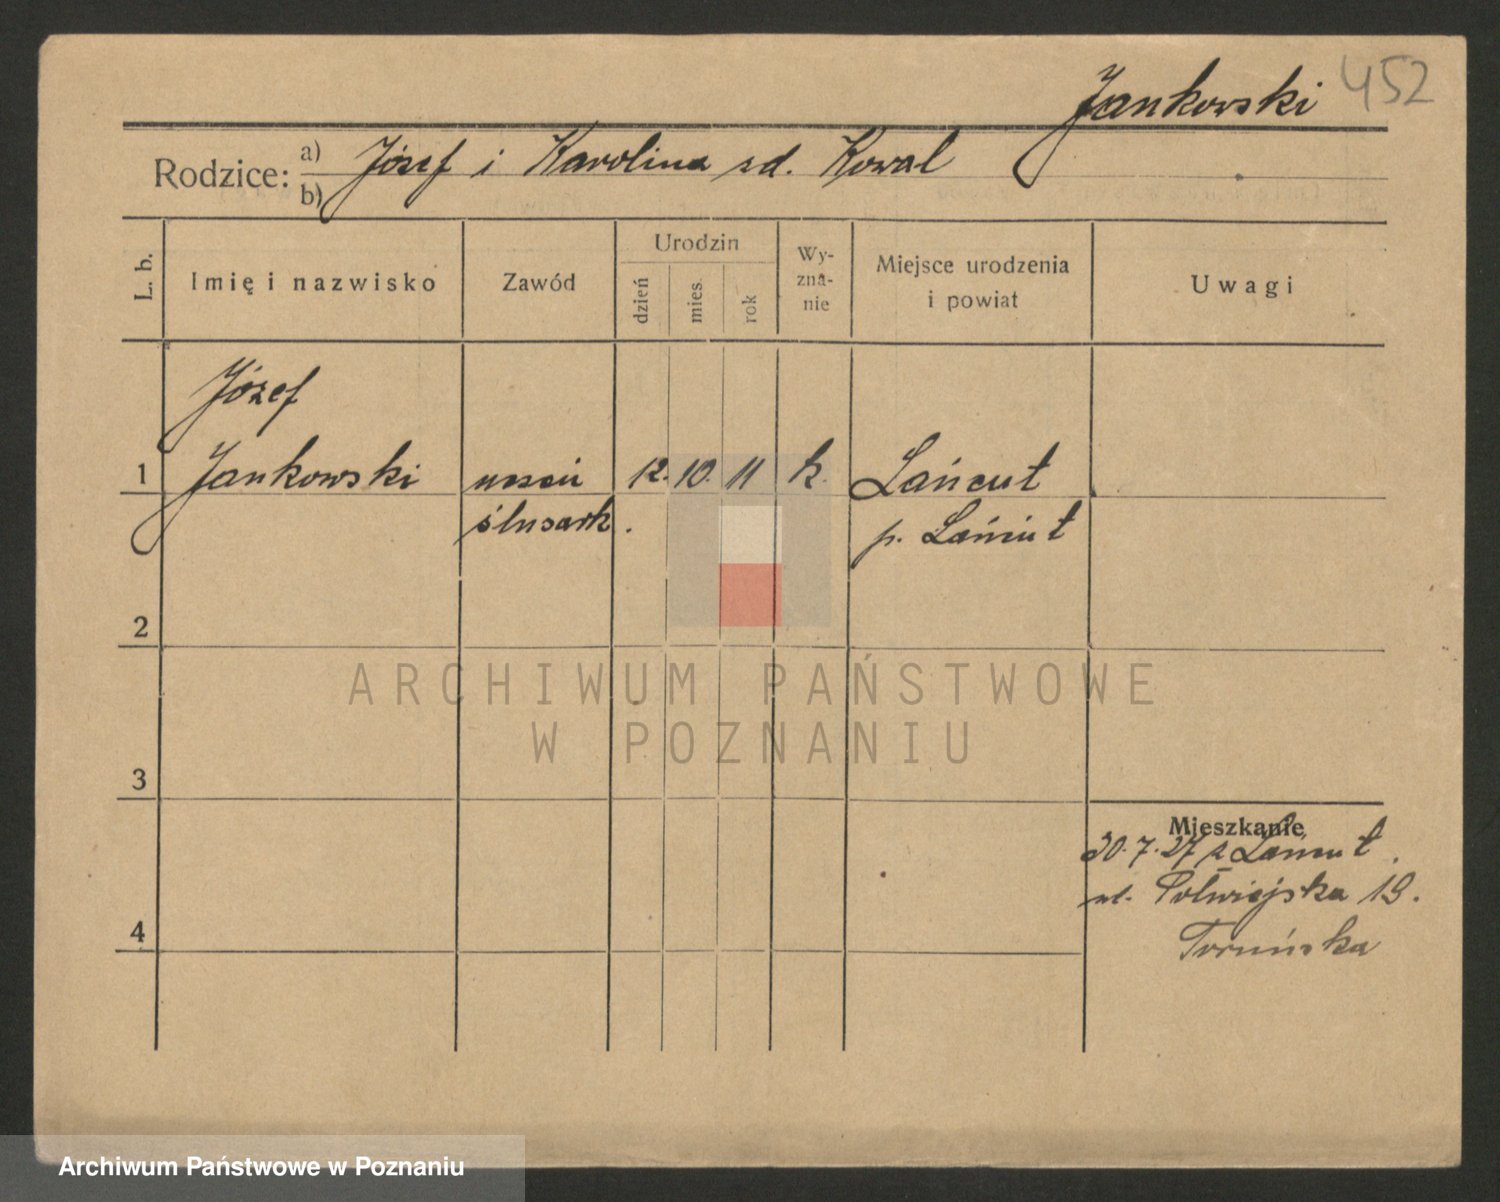 Jankowski 452
Rodzice: a) Józef i Karolina zd. Kowal
b)
L. b.
Imię i nazwisko
Zawód
Urodzin
dzień
mies.
rok
Wy-
zna-
nie
Miejsce urodzenia
i powiat
Uwagi
Józef
1 Jankowski uczeń 12. 10. 11 k. Łańcut
ślusark. p. Łańcut
2
ARCHIWUM PAŃSTWOWE
W POZNANIU
3
Mieszkanie
30.7.27 z Łańcut.
ul. Półwiejska 19.
4
Toruńska
Archiwum Państwowe w Poznaniu